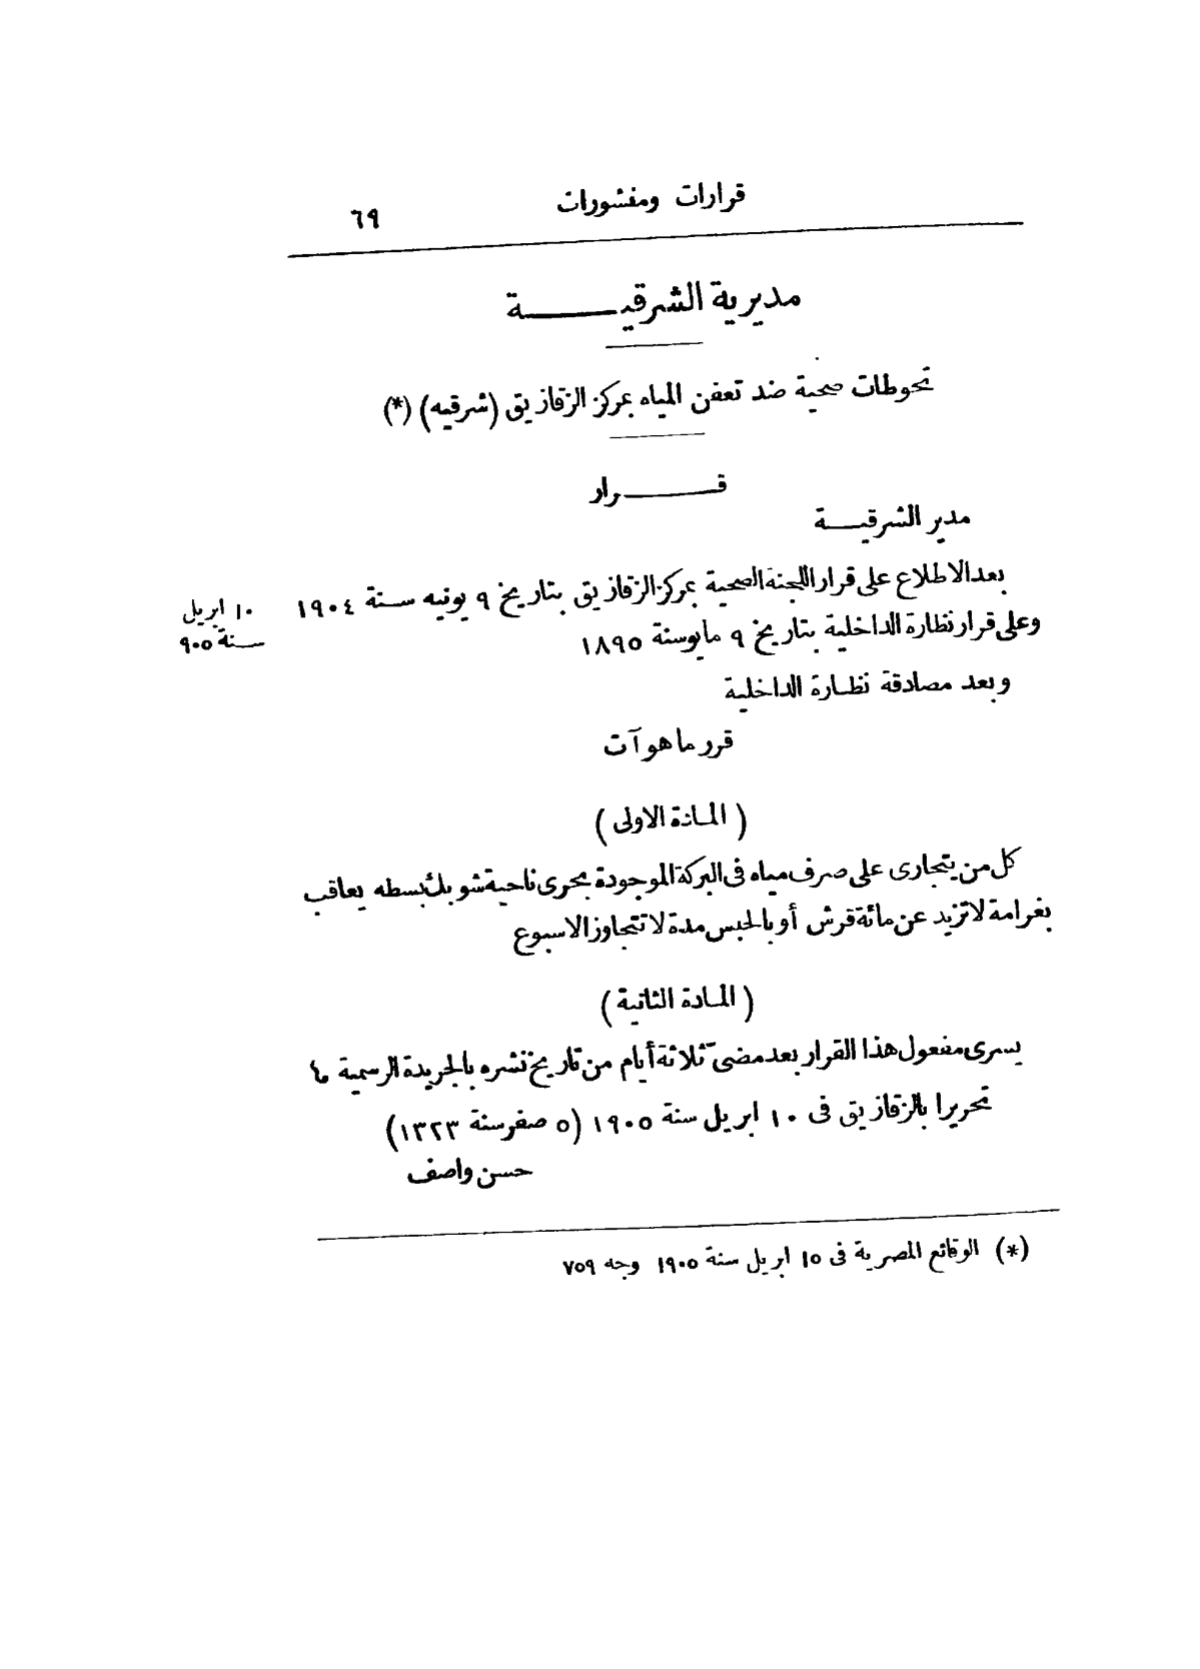 قرارات ومنشورات
٦٩
مديرية الشرقيـــــة
تحوطات صحية ضد تعفن المياه بمركز الزقازيق (شرقيه) (*)
قـــــرار
مدير الشرقيـــة
بعد الاطلاع على قرار اللجنة الصحية بمركز الزقازيق بتاريخ ٩ يونيه سـنة ١٩٠٤
١٠ ابريل
ســنة ٩٠٥
وعلى قرار نظارة الداخلية بتاريخ ٩ مايو سنة ١٨٩٥
وبعد مصادقة نظـارة الداخلية
قرر ما هو آت
( المـادة الاولى )
كل من يتجارى على صرف مياه فى البركة الموجودة بحرى ناحية شوبك بسطه يعاقب
بغرامة لا تزيد عن مائة قرش أو بالحبس مدة لا تتجاوز الاسبوع
( المـادة الثانية )
يسرى مفعول هذا القرار بعد مضىّ ثلاثة أيام من تاريخ نشره بالجريدة الرسمية
تحريرا بالزقازيق فى ١٠ ابريل سنة ١٩٠٥ (٥ صفر سنة ١٣٢٣)
حسن واصف
(*) الوقائع المصرية فى ١٥ ابريل سنة ١٩٠٥ وجه ٧٥٩